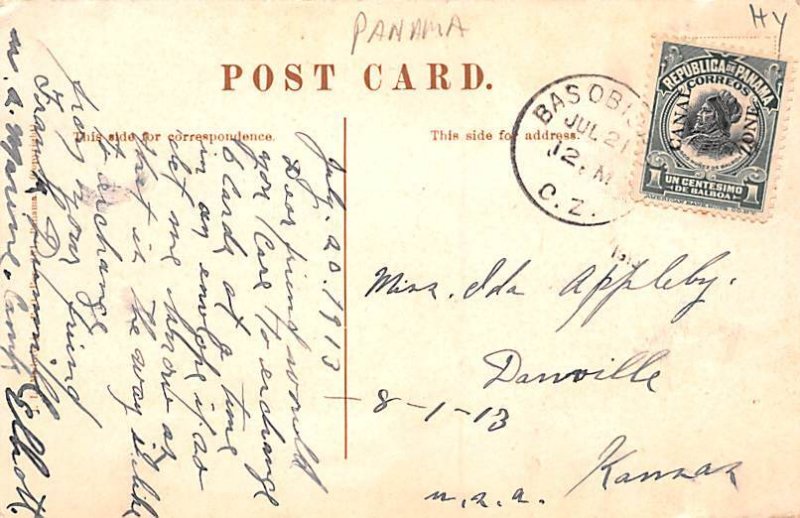 PANAMA
HY
POST CARD.
This side for correspondence.
This side for address.
BAS OBIS
JUL 21
12. M
C. Z.
REPUBLICA DE PANAMA
CORREOS
CANAL ZONE
1 UN CENTESIMO 1
DE BALBOA
July. 20. 1913
Dear friend would
you Care to exchange
6 Cards at a time
in an envelope if so
let me know as
that is the way I like
to exchange
from your friend
Frank
M. A. Marine. Camp Elliott.
Miss. Ida Appleby.
Danville
8-1-13
Kansas
U.S.A.